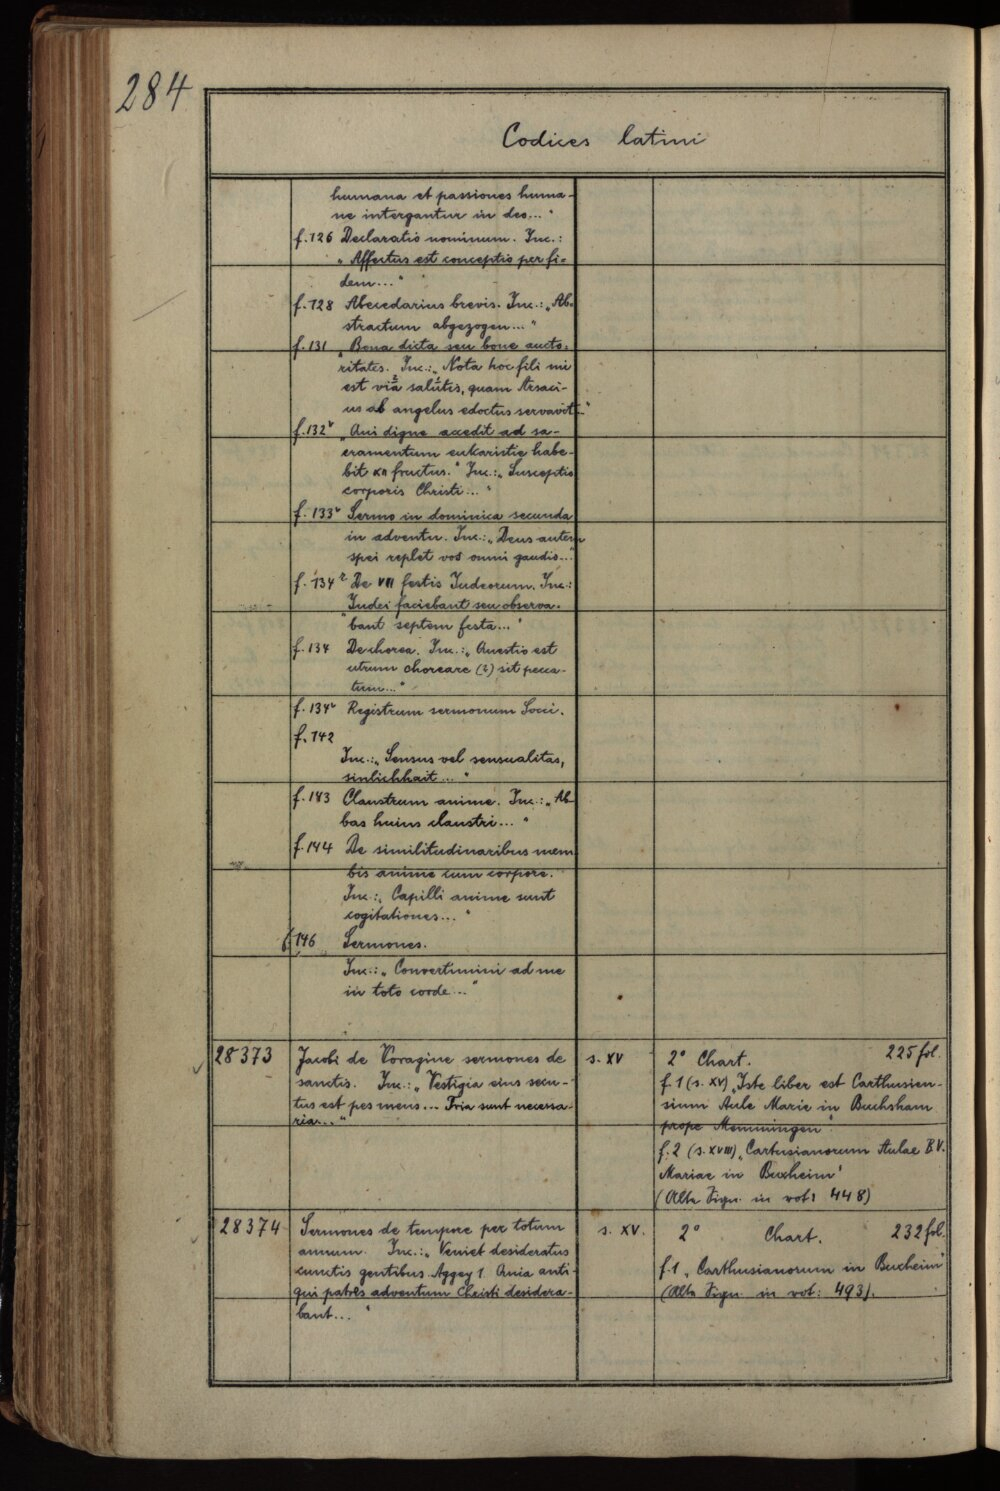 284
Codices latini
humana et passiones huma-
ne intergantur in deo..."
f. 126 Declaratio nominum. Inc.:
"Affectus est conceptio per fi-
dem..."
f. 128 Abecedarius brevis. Inc.: "Ab-
stractum abgezogen..."
f. 131 "Bona dicta seu bone aucto-
ritates. Inc.: "Nota hoc fili mi
est via salutis, quam Arsaci-
us ab angelus edoctus servavit..."
f. 132v "Qui digne accedit ad sa-
cramentum eukaristie habe-
bit XII fructus." Inc.: "Susceptio
corporis Christi..."
f. 133v Sermo in dominica secunda
in adventu. Inc.: "Deus autem
spei replet vos omni gaudio..."
f. 134r De VII festis Iudeorum. Inc.:
"Iudei faciebant seu observa-
bant septem festa..."
f. 134 De chorea. Inc.: "Questio est
utrum choreare (?) sit pecca-
tum..."
f. 134v Registrum sermonum Socci.
f. 142
Inc.: "Sensus vel sensualitas,
sinlichhait..."
f. 143 Claustrum anime. Inc.: "Ab-
bas huius claustri..."
f. 144 De similitudinaribus mem
bis anime cum corpore.
Inc.: "Capilli anime sunt
cogitationes..."
f. 146 Sermones.
Inc.: "Convertimini ad me
in toto corde..."
28373 Jacobi de Voragine sermones de s. XV 2° Chart. 225 fol.
sanctis. Inc.: "Vestigia eius secu-
tus est pes meus... Tria sunt necessa-
ria..."
f. 1 (s. XV) "Iste liber est Carthusien-
sium Aule Marie in Buchsham
prope Memmingen"
f. 2 (s. XVIII) "Cartusianorum Aulae B.V.
Mariae in Buxheim"
(Alte Sign. in rot: 448)
28374 Sermones de tempore per totum s. XV. 2° Chart. 232 fol.
annum. Inc.: "Veniet desideratus
cunctis gentibus. Aggey 1. Quia anti-
qui patres adventum Christi desidera-
bant..."
f. 1 "Carthusianorum in Buxheim"
(Alte Sign. in rot: 493).